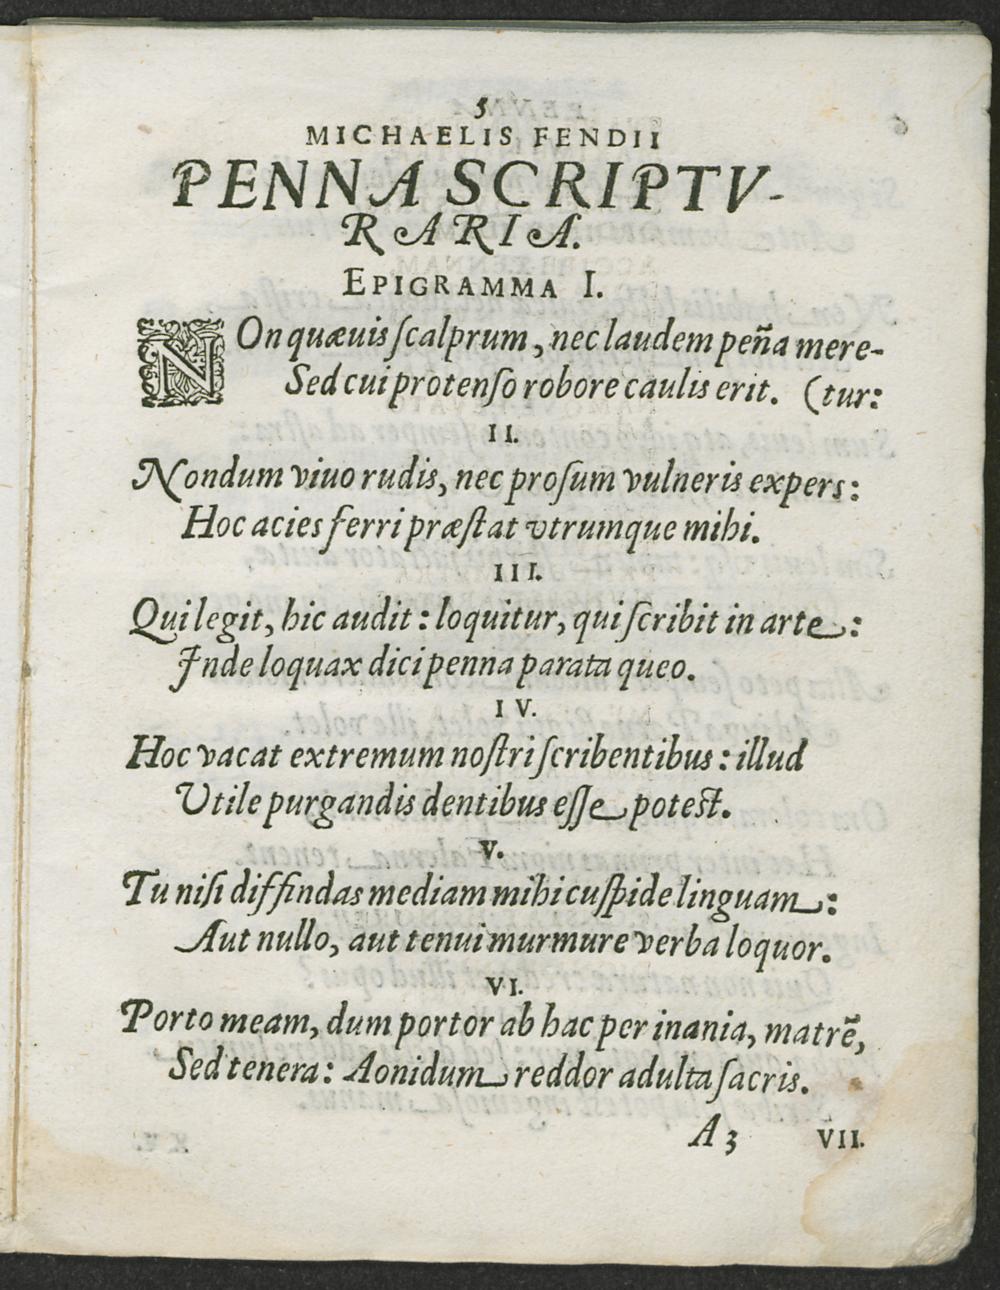 5
MICHAELIS FENDII
PENNA SCRIPTV-
RARIA.
EPIGRAMMA I.
NOn quævis ſcalprum, nec laudem peña mere-
Sed cui protenſo robore caulis erit. (tur:
II.
Nondum viuo rudis, nec proſum vulneris expers:
Hoc acies ferri præſtat vtrumque mihi.
III.
Qui legit, hic audit: loquitur, qui ſcribit in arte:
Inde loquax dici penna parata queo.
IV.
Hoc vacat extremum noſtri ſcribentibus: illud
Vtile purgandis dentibus eſſe poteſt.
V.
Tu niſi diffindas mediam mihi cuſpide linguam:
Aut nullo, aut tenui murmure verba loquor.
VI.
Porto meam, dum portor ab hac per inania, matrē,
Sed tenera: Aonidum reddor adulta ſacris.
A 3 VII.